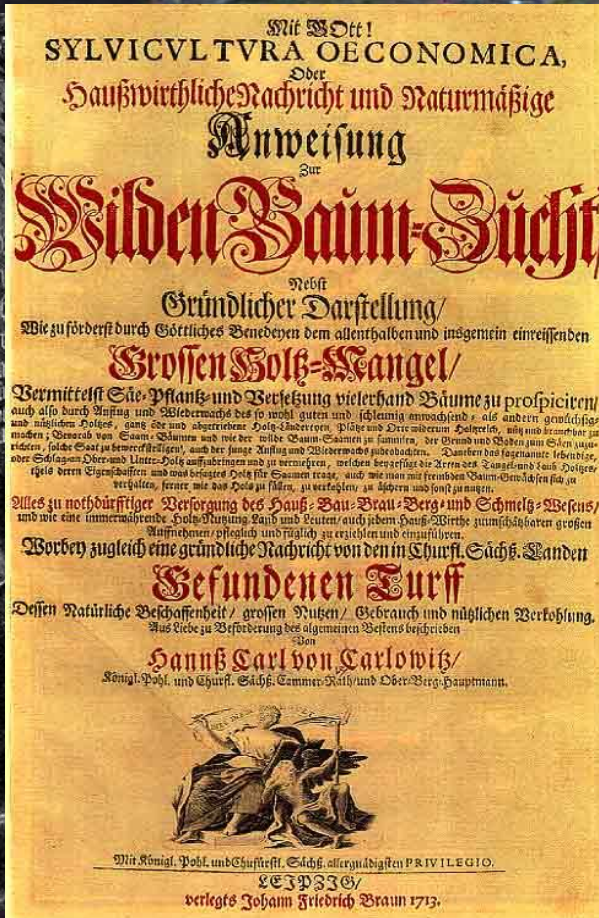 Mit GOtt!
SYLVICVLTVRA OECONOMICA,
Oder
Haußwirthliche Nachricht und Naturmäßige
Anweisung
Zur
Wilden Baum-Zucht/
Nebst
Gründlicher Darstellung/
Wie zu förderst durch Göttliches Benedeyen dem allenthalben und insgemein einreissenden
Grossen Holtz-Mangel/
Vermittelst Säe-Pflantz-und Versetzung vielerhand Bäume zu prospiciren/
auch also durch Anflug und Wiederwachs des so wohl guten und schleunig anwachsend- als andern gewüchsig-
und nützlichen Holtzes, gantz öde und abgetriebene Holtz-Ländereyen, Plätze und Orte wiederum Holtzreich, nütz und brauchbar zu
machen; Bevorab von Saam-Bäumen und wie der wilde Baum-Saamen zu sammlen, der Grund und Boden zum Säen zuzu-
richten, solche Saat zu bewerckstelligen, auch der junge Anflug und Wiederwachs zu beobachten. Daneben das sogenannte lebendige,
oder Schlag-an Ober-und Unter-Holtz auffzubringen und zu vermehren, welchen beygefügt die Arten des Tangel-und Laub Holtzes,
theils deren Eigenschafften und was besagtes Holtz für Saamen trage, auch wie man mit frembden Baum-Gewächsen sich zu
verhalten, ferner wie das Holtz zu fällen, zu verkohlen, zu äschern und sonst zu nutzen.
Alles zu nothdürfftiger Versorgung des Hauß-Bau-Brau-Berg-und Schmeltz-Wesens/
und wie eine immerwährende Holtz-Nutzung, Land und Leuten/auch jedem Hauß-Wirthe zu unschätzbaren großen
Auffnehmen/pfleglich und füglich zu erziehlen und einzuführen.
Worbey zugleich eine gründliche Nachricht von den in Churfl. Sächß. Landen
Gefundenen Turff
Dessen Natürliche Beschaffenheit/ grossen Nutzen/ Gebrauch und nützlichen Verkohlung.
Aus Liebe zu Beförderung des algemeinen Bestens beschrieben
Von
Hannß Carl von Carlowitz/
Königl. Pohl. und Churfl. Sächß. Cammer-Rath/und Ober-Berg-Hauptmann.
Mit Königl. Pohl. und Churfürstl. Sächß. allergnädigsten PRIVILEGIO.
LEIPZIG/
verlegts Johann Friedrich Braun 1713.